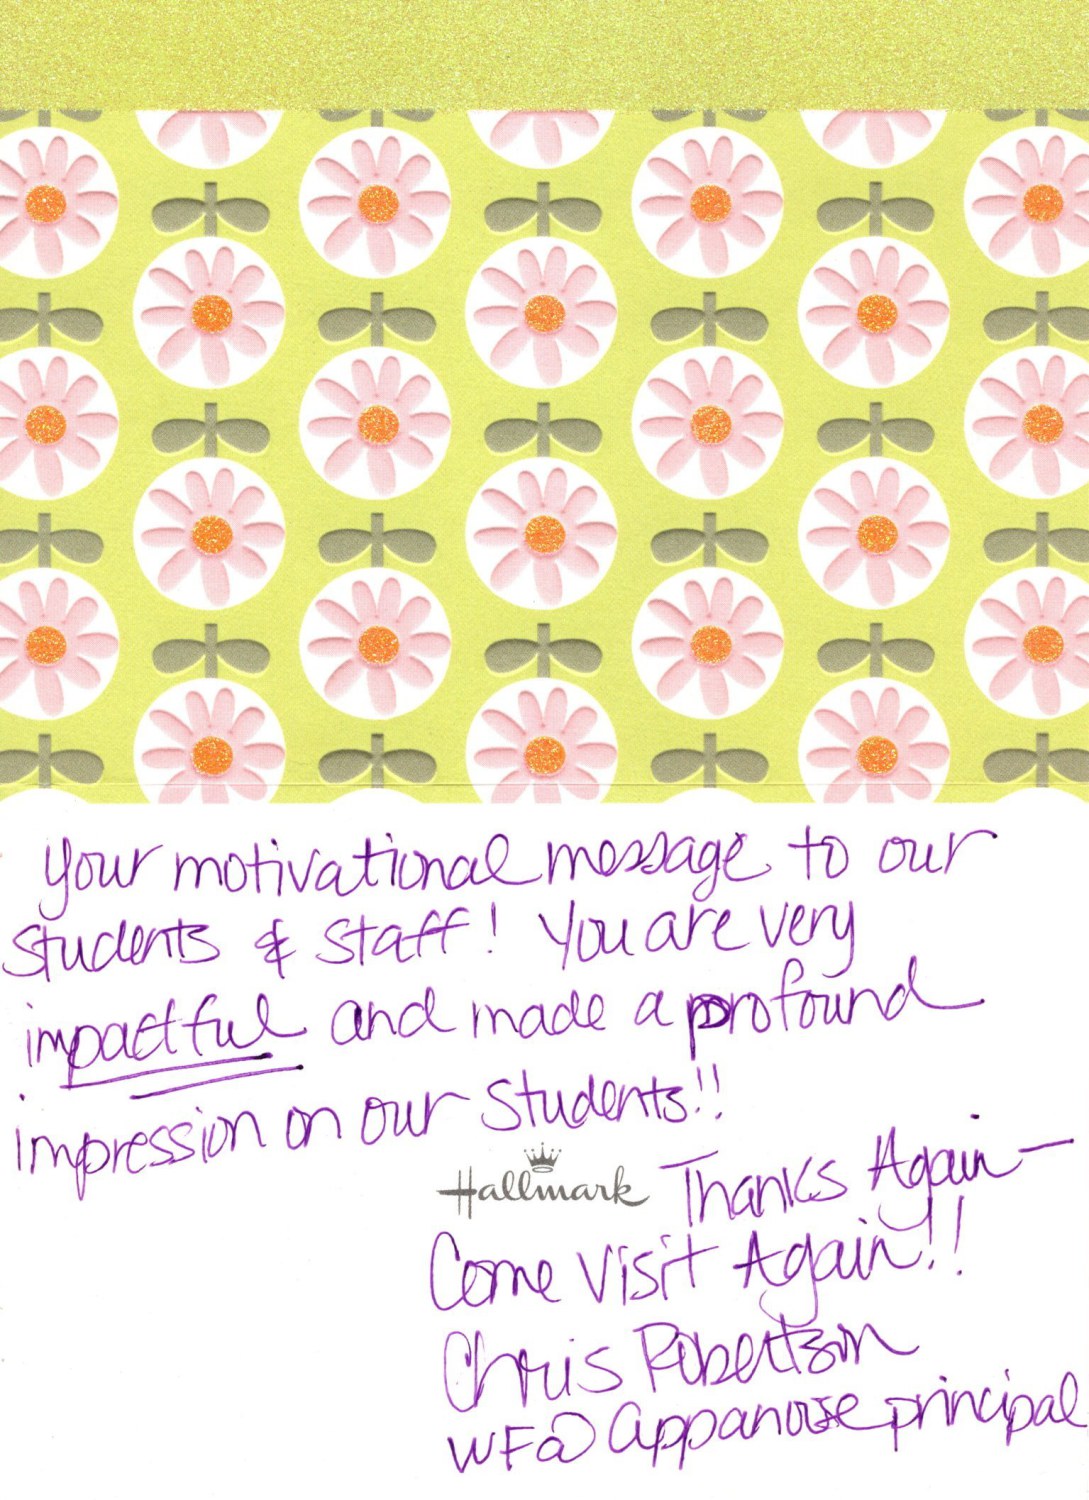 your motivational message to our
students & staff! You are very
impactful and made a profound
impression on our students!!
Hallmark Thanks Again—
Come Visit Again!!
Chris Robertson
WF@Appanoose principal